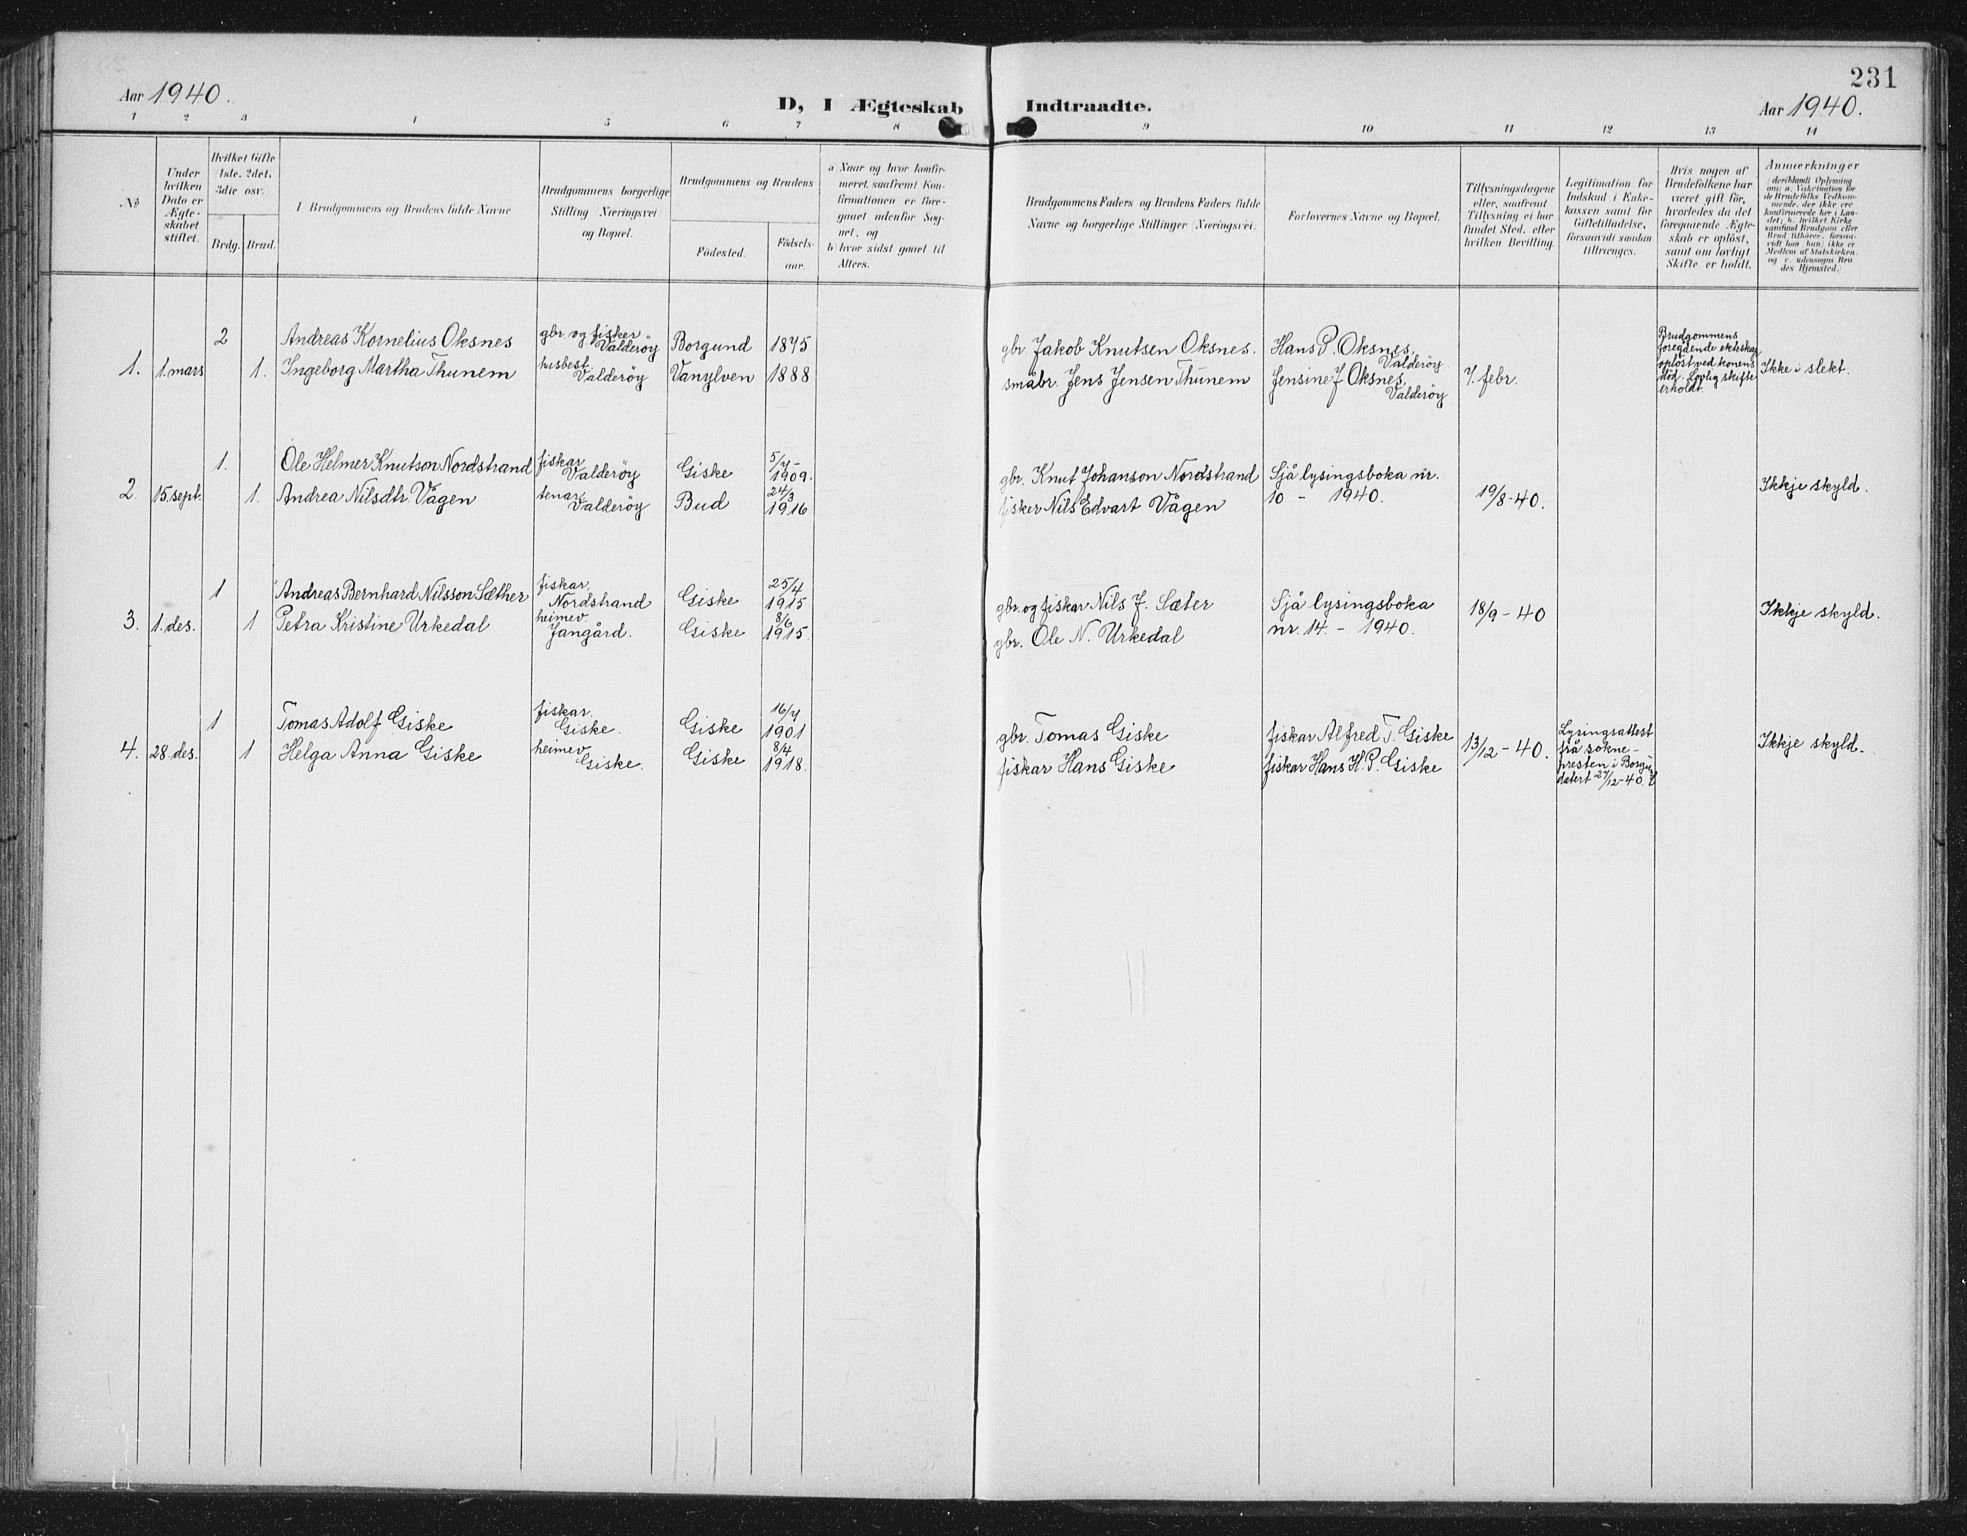 231
Aar 1940.
D, I Ægteskab Indtraadte.
Aar 1940.
1 2 3 4 5 6 7 8 9 10 11 12 13 14
No
Under
hvilken
Dato er
Ægte-
skabet
stiftet.
Hvilket Gifte
(1ste, 2det,
3die osv.)
Brdg. Brud.
Brudgommens og Brudens fulde Navne
Brudgommens borgerlige
Stilling Næringsvei
og Bopæl.
Brudgommens og Brudens
Födested.
Födsels-
aar.
a Naar og hvor konfir-
meret, saafremt Kon-
firmationen er fore-
gaaet udenfor Sog-
net, og
b hvor sidst gaaet til
Alters.
Brudgommens Faders og Brudens Faders fulde
Navne og borgerlige Stillinger (Næringsvei)
Forlovernes Navne og Bopæl.
Tillysningsdagene
eller, saafremt
Tillysning ei har
fundet Sted, efter
hvilken Bevilling.
Legitimation for
Indskud i Enke-
kassen samt for
Giftetilladelse,
forsaavidt saadan
tiltrænges.
Hvis nogen af
Brudefolkene har
været gift för,
hvorledes da det
foregaaende Ægte-
skab er oplöst,
samt om lovligt
Skifte er holdt.
Anmærkninger
(deriblandt Oplysning
om: a. Vakcination for
de Brudefolks Vedkom-
mende, der ikke ere
konfirmerede her i Lan-
det; b. hvilket Kirke
samfund Brudgom eller
Brud tilhører, forsaa-
vidt han (hun) ikke er
Medlem af Statskirken,
og c. udensogns Bru
des Hjemsted.)
1. 1. mars 2 Andreas Kornelius Oksnes gbr og fisker Valderöy Borgund 1875 gbr Jakob Knutsen Oksnes. Hans P. Oksnes, Valderöy
1. Ingeborg Martha Thunem husbest. Valderöy Vanylven 1888 småbr. Jens Jensen Thunem Jensine J Oksnes, Valderöy 7. febr.
Brudgommens
foregående ekteskap
oplöst ved konens
död. Lovlig skifte
erholdt.
Ikke i slekt.
2. 15 sept. 1. Ole Helmer Knutson Nordstrand fiskar Valderöy Giske 5/7-1909. gbr. Knut Johanson Nordstrand Sjå lysingsboka nr.
1. Andrea Nilsdtr. Vågen tenar Valderöy Bud 24/3 1916 fisker Nils Edvart Vågen 10 - 1940. 19/8-40. Ikkje skyld.
3. 1. des. 1 Andreas Bernhard Nilsson Sæther fiskar Nordstrand Giske 25/4 1915 gbr. og fiskar Nils J. Sæter Sjå lysingsboka 18/9-40 Ikkje skyld.
1 Petra Kristine Urkedal heimev. Jangård. Giske 8/6 1915. gbr. Ole N. Urkedal nr. 14. - 1940.
4. 28. des. 1 Tomas Adolf Giske fiskar Giske. Giske 16/7 1901 gbr. Tomas Giske fiskar Alfred T. Giske
1 Helga Anna Giske heimev Giske. Giske 8/4 1918. fiskar Hans Giske fiskar Hans H. P. Giske 13/12-40.
Lysingsattest
frå sokne-
presten i
datert 27/12-40.
Ikkje skyld.